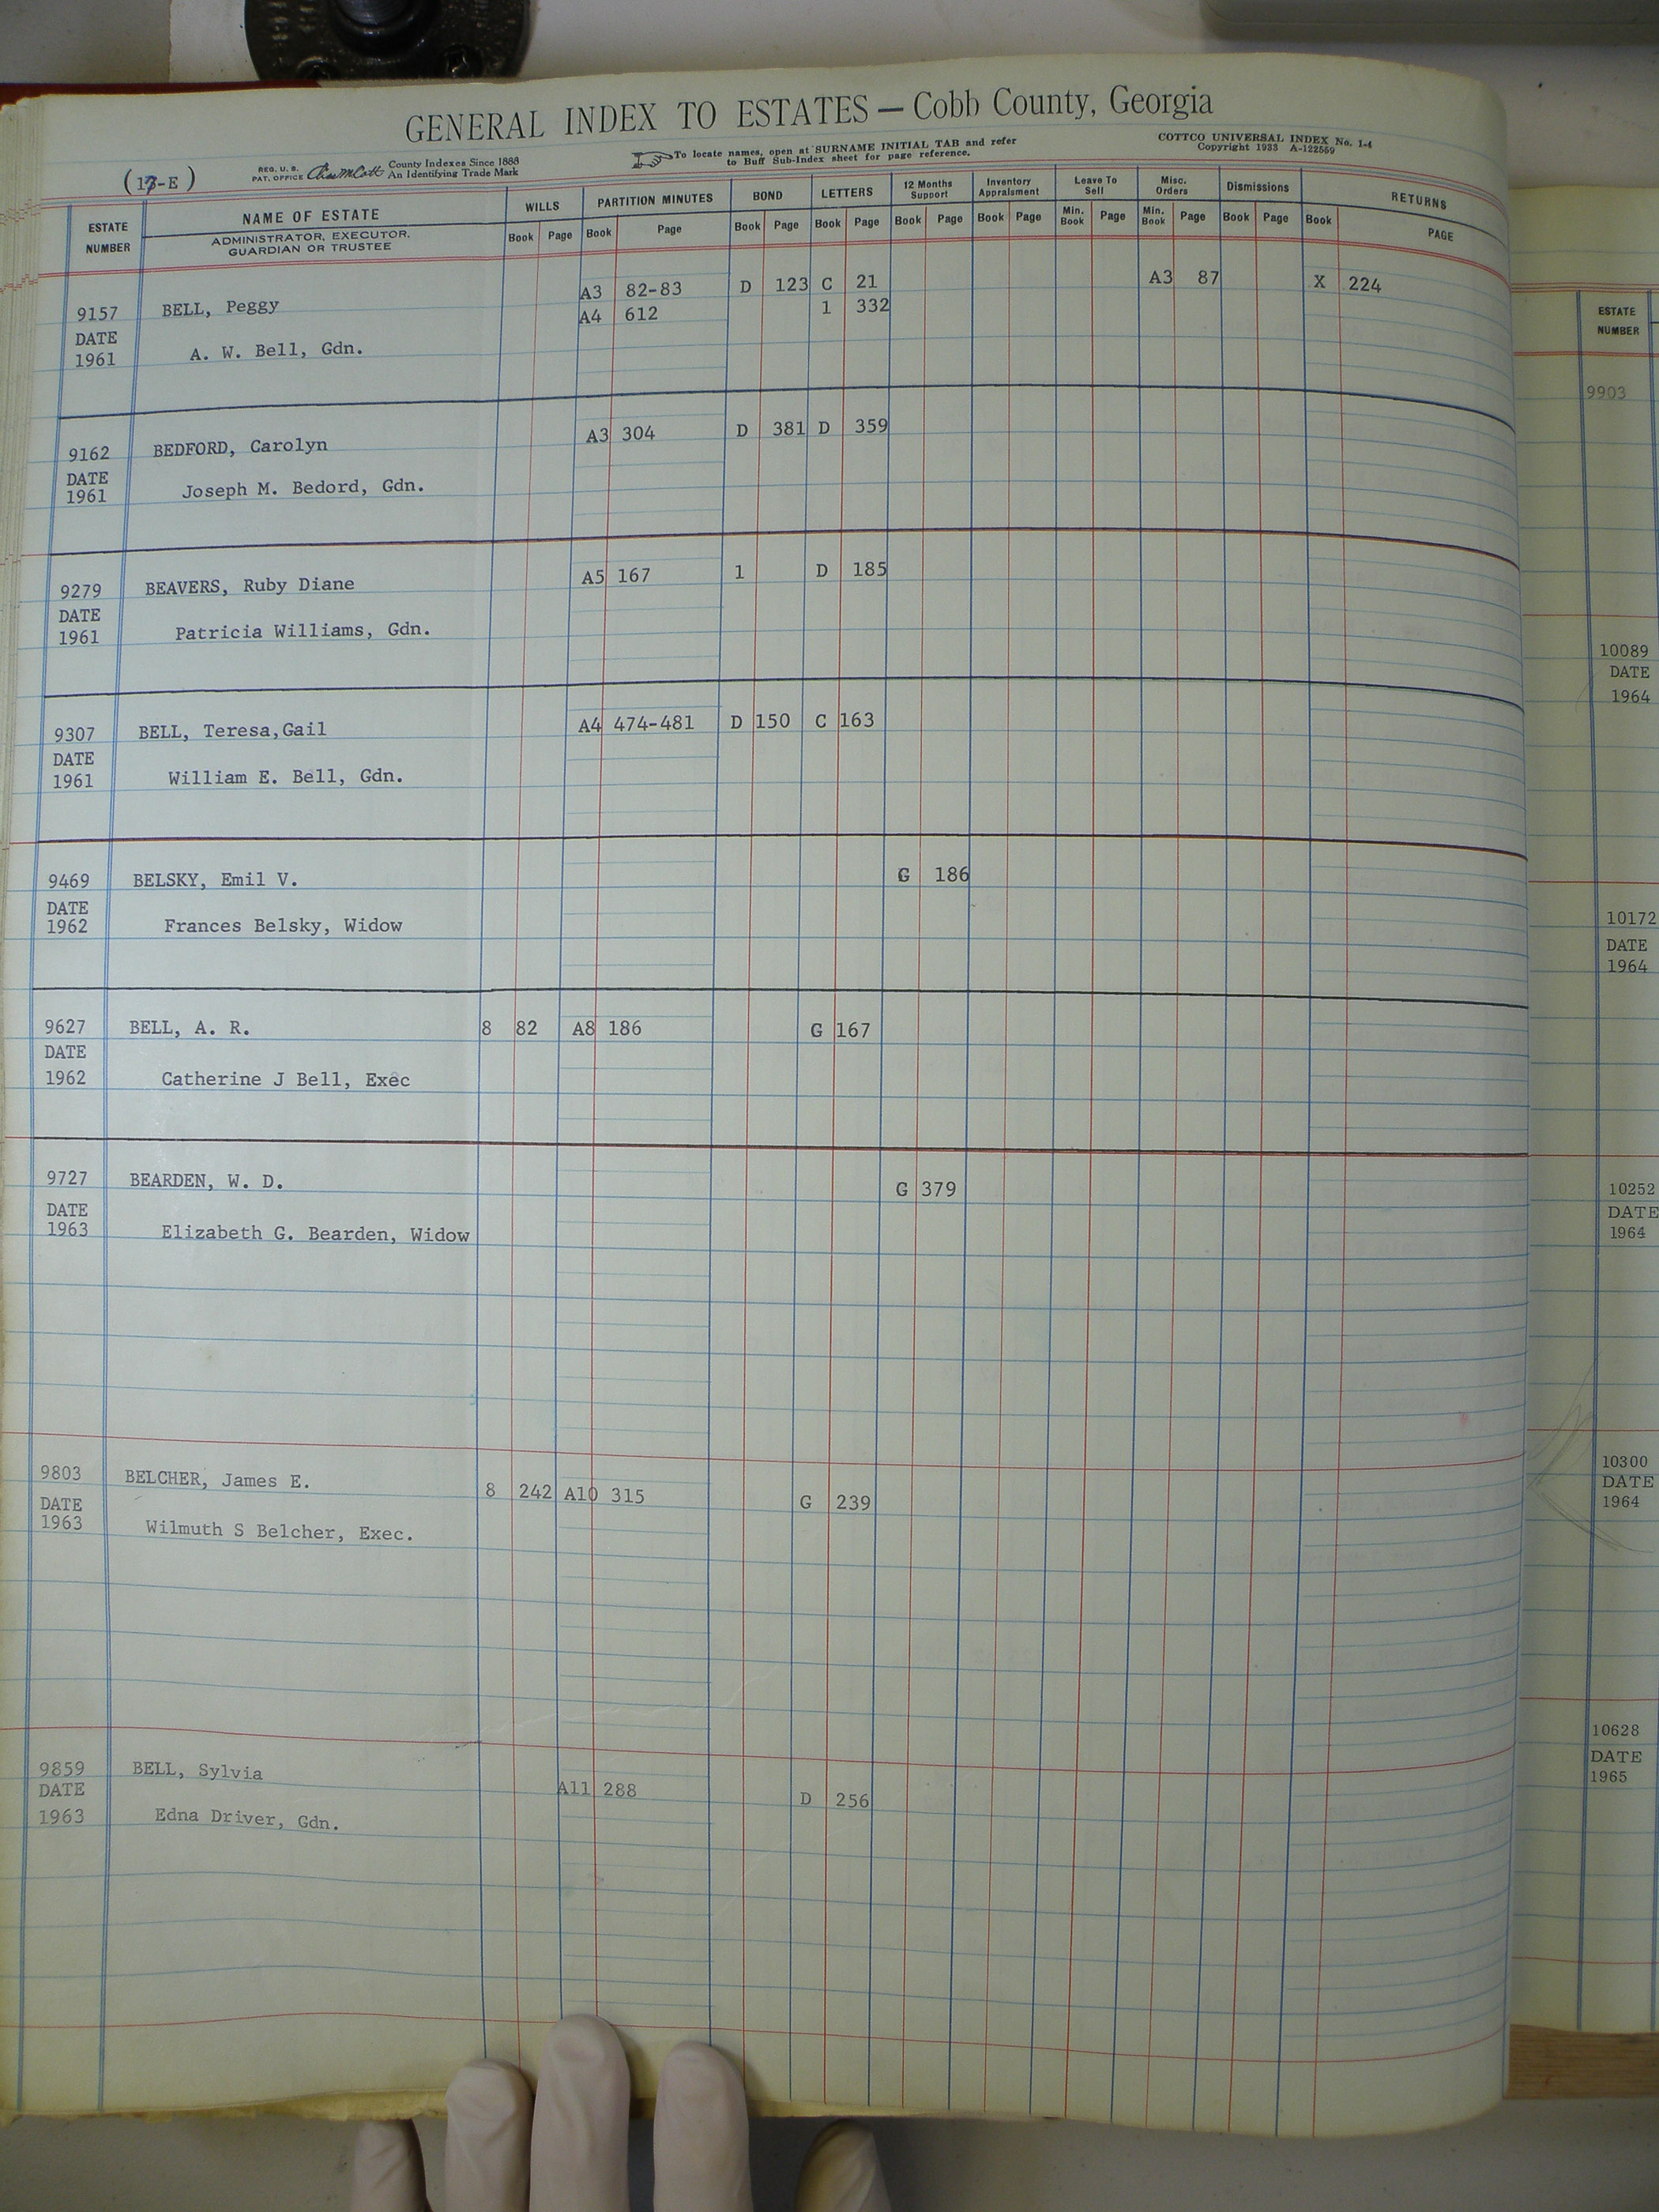 GENERAL INDEX TO ESTATES — Cobb County, Georgia
(13-E)
REG. U. S. PAT. OFFICE
County Indexes Since 1888
An Identifying Trade Mark
To locate names, open at SURNAME INITIAL TAB and refer
to Buff Sub-Index sheet for page reference.
COTTCO UNIVERSAL INDEX No. 1-4
Copyright 1933 A-122559
ESTATE NUMBER
NAME OF ESTATE
ADMINISTRATOR, EXECUTOR, GUARDIAN OR TRUSTEE
WILLS PARTITION MINUTES BOND LETTERS 12 Months Support Inventory Appraisment Leave To Sell Misc. Orders Dismissions RETURNS
Book Page Book Page Book Page Book Page Book Page Book Page Min. Book Page Min. Book Page Book Page Book PAGE
A3 82-83 D 123 C 21 A3 87 X 224
9157 BELL, Peggy A4 612 1 332
DATE
1961 A. W. Bell, Gdn.
9162 BEDFORD, Carolyn A3 304 D 381 D 359
DATE
1961 Joseph M. Bedord, Gdn.
9279 BEAVERS, Ruby Diane A5 167 1 D 185
DATE
1961 Patricia Williams, Gdn.
9307 BELL, Teresa,Gail A4 474-481 D 150 C 163
DATE
1961 William E. Bell, Gdn.
9469 BELSKY, Emil V. G 186
DATE
1962 Frances Belsky, Widow
9627 BELL, A. R. 8 82 A8 186 G 167
DATE
1962 Catherine J Bell, Exec
9727 BEARDEN, W. D. G 379
DATE
1963 Elizabeth G. Bearden, Widow
9803 BELCHER, James E. 8 242 A10 315 G 239
DATE
1963 Wilmuth S Belcher, Exec.
9859 BELL, Sylvia A11 288 D 256
DATE
1963 Edna Driver, Gdn.
ESTATE
NUMBER
9903
10089
DATE
1964
10172
DATE
1964
10252
DATE
1964
10300
DATE
1964
10628
DATE
1965